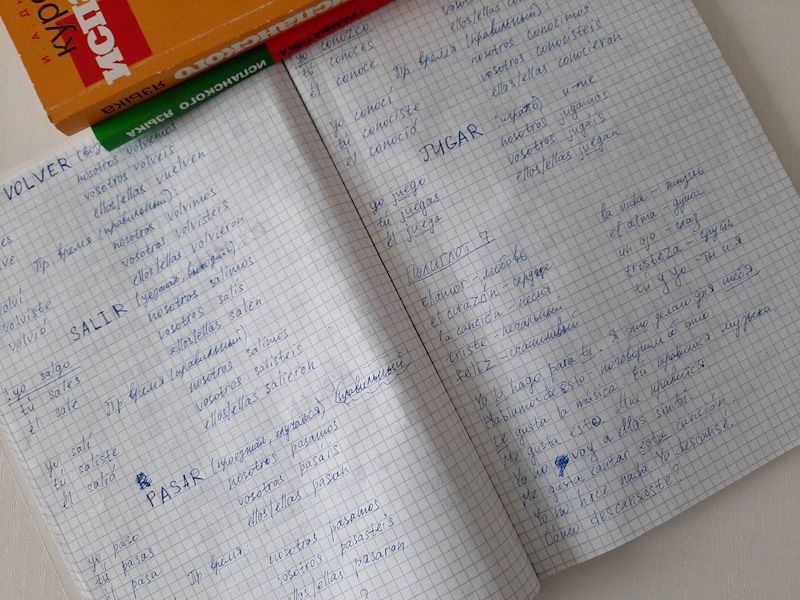 курс
испанского
языка
ГРАММАТИКА
ИСПАНСКОГО ЯЗЫКА
VOLVER
nosotros volvemos
vosotros volveis
ellos/ellas vuelven
Пр время (правильный):
nosotros volvimos
volviste vosotros volvisteis
volvió ellos/ellas volvieron
SALIR (уезжать, выходить)
! yo salgo nosotros salimos
tú sales vosotros salis
él sale ellos/ellas salen
Пр время (правильный)
yo salí nosotros salimos
tú saliste vosotros salisteis
él salió ellos/ellas salieron
PASAR (проезжать, случаться) (правильный)
yo paso nosotros pasamos
tú pasas vosotros pasais
él pasa ellos/ellas pasan
Пр время
nosotros pasamos
vosotros pasasteis
ellos/ellas pasaron
yo conozco
tú conoces
él conoce ellos/ellas
Пр время (правильный):
yo conocí nosotros conocimos
tú conociste vosotros conocisteis
él conoció ellos/ellas conocieron
JUGAR (играть) u→ue
yo juego nosotros jugamos
tú juegas vosotros jugais
él juega ellos/ellas juegan
Полиглот 7
el amor – любовь
el corazón – сердце
la canción – песня
triste – печальный
feliz – счастливый
la vida – жизнь
el alma душа
un ojo – глаз
tristeza – грусть
tú y yo – ты и я
Yo lo hago para ti. Я это делаю для тебя
Hablamos de esto. поговорим об этом
Le gusta la música. Ей нравится музыка.
Me gusta esto. мне нравится.
Yo no voy a ellos sin ti.
Me gusta cantar esta canción.
Yo no hace nada. Yo descansé.
Cómo descansaste?